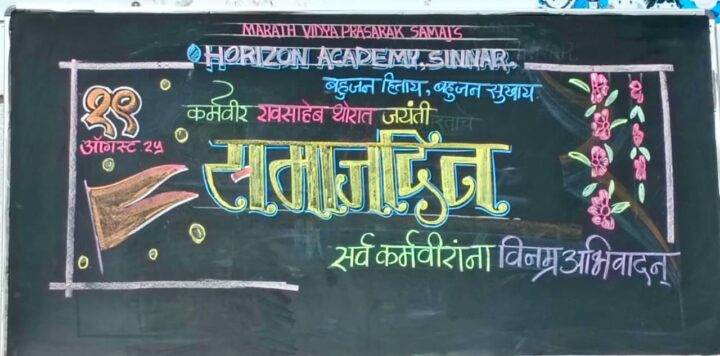 MARATH VIDYA PRASARAK SAMAJ'S
HORIZON ACADEMY, SINNAR.
बहुजन हिताय, बहुजन सुखाय
१९
ऑगस्ट. २५
कर्मवीर रावसाहेब थोरात जयंती
समाजदिन
सर्व कर्मवीरांना विनम्र अभिवादन